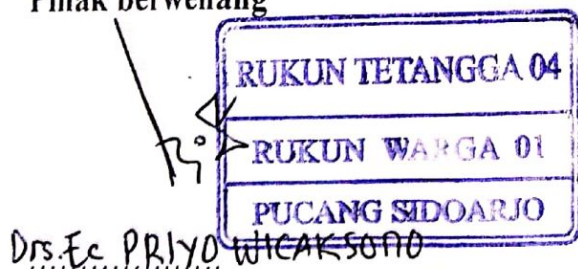 Pihak berwenang
RUKUN TETANGGA 04
RUKUN WARGA 01
PUCANG SIDOARJO
Drs. Ec PRIYO WICAKSONO